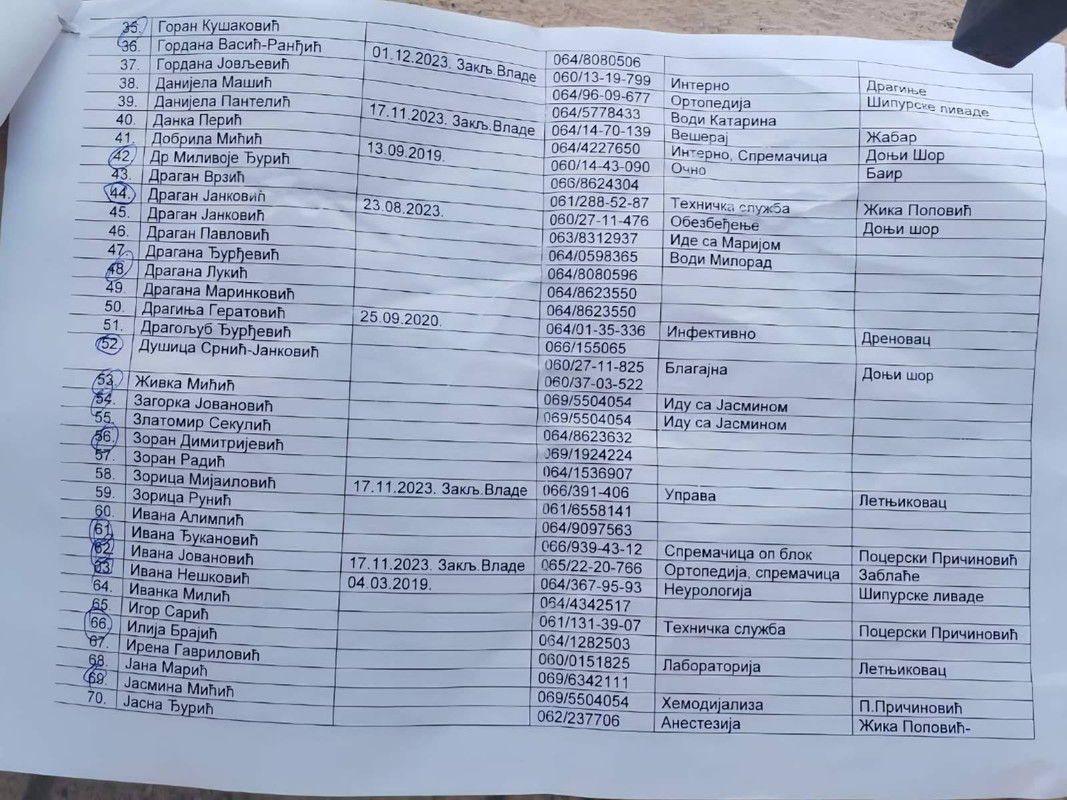 35. Горан Кушаковић 064/8080506
36. Гордана Васић-Ранђић 01.12.2023. Закљ.Владе 060/13-19-799 Интерно Драгиње
37. Гордана Јовљевић 064/96-09-677 Ортопедија Шипурске ливаде
38. Данијела Машић 064/5778433 Води Катарина
39. Данијела Пантелић 17.11.2023. Закљ.Владе 064/14-70-139 Вешерај Жабар
40. Данка Перић 064/4227650 Интерно, Спремачица Доњи Шор
41. Добрила Мићић 13.09.2019. 060/14-43-090 Очно Баир
42. Др Миливоје Ђурић 066/8624304
43. Драган Врзић 061/288-52-87 Техничка служба Жика Поповић
44. Драган Јанковић 23.08.2023. 060/27-11-476 Обезбеђење Доњи шор
45. Драган Јанковић 063/8312937 Иде са Маријом
46. Драган Павловић 064/0598365 Води Милорад
47. Драгана Ђурђевић 064/8080596
48. Драгана Лукић 064/8623550
49. Драгана Маринковић 064/8623550
50. Драгиња Гератовић 25.09.2020. 064/01-35-336 Инфективно Дреновац
51. Драгољуб Ђурђевић 066/155065
52. Душица Срнић-Јанковић 060/27-11-825 Благајна Доњи шор
060/37-03-522
53. Живка Мићић 069/5504054 Иду са Јасмином
54. Загорка Јовановић 069/5504054 Иду са Јасмином
55. Златомир Секулић 064/8623632
56. Зоран Димитријевић 069/1924224
57. Зоран Радић 064/1536907
58. Зорица Мијаиловић 17.11.2023. Закљ.Владе 066/391-406 Управа Летњиковац
59. Зорица Рунић 061/6558141
60. Ивана Алимпић 064/9097563
61. Ивана Ђукановић 066/939-43-12 Спремачица оп блок Поцерски Причиновић
62. Ивана Јовановић 17.11.2023. Закљ.Владе 065/22-20-766 Ортопедија, спремачица Заблаће
63. Ивана Нешковић 04.03.2019. 064/367-95-93 Неурологија Шипурске ливаде
64. Иванка Милић 064/4342517
65. Игор Сарић 061/131-39-07 Техничка служба Поцерски Причиновић
66. Илија Брајић 064/1282503
67. Ирена Гавриловић 060/0151825 Лабораторија Летњиковац
68. Јана Марић 069/6342111
69. Јасмина Мићић 069/5504054 Хемодијализа П.Причиновић
70. Јасна Ђурић 062/237706 Анестезија Жика Поповић-